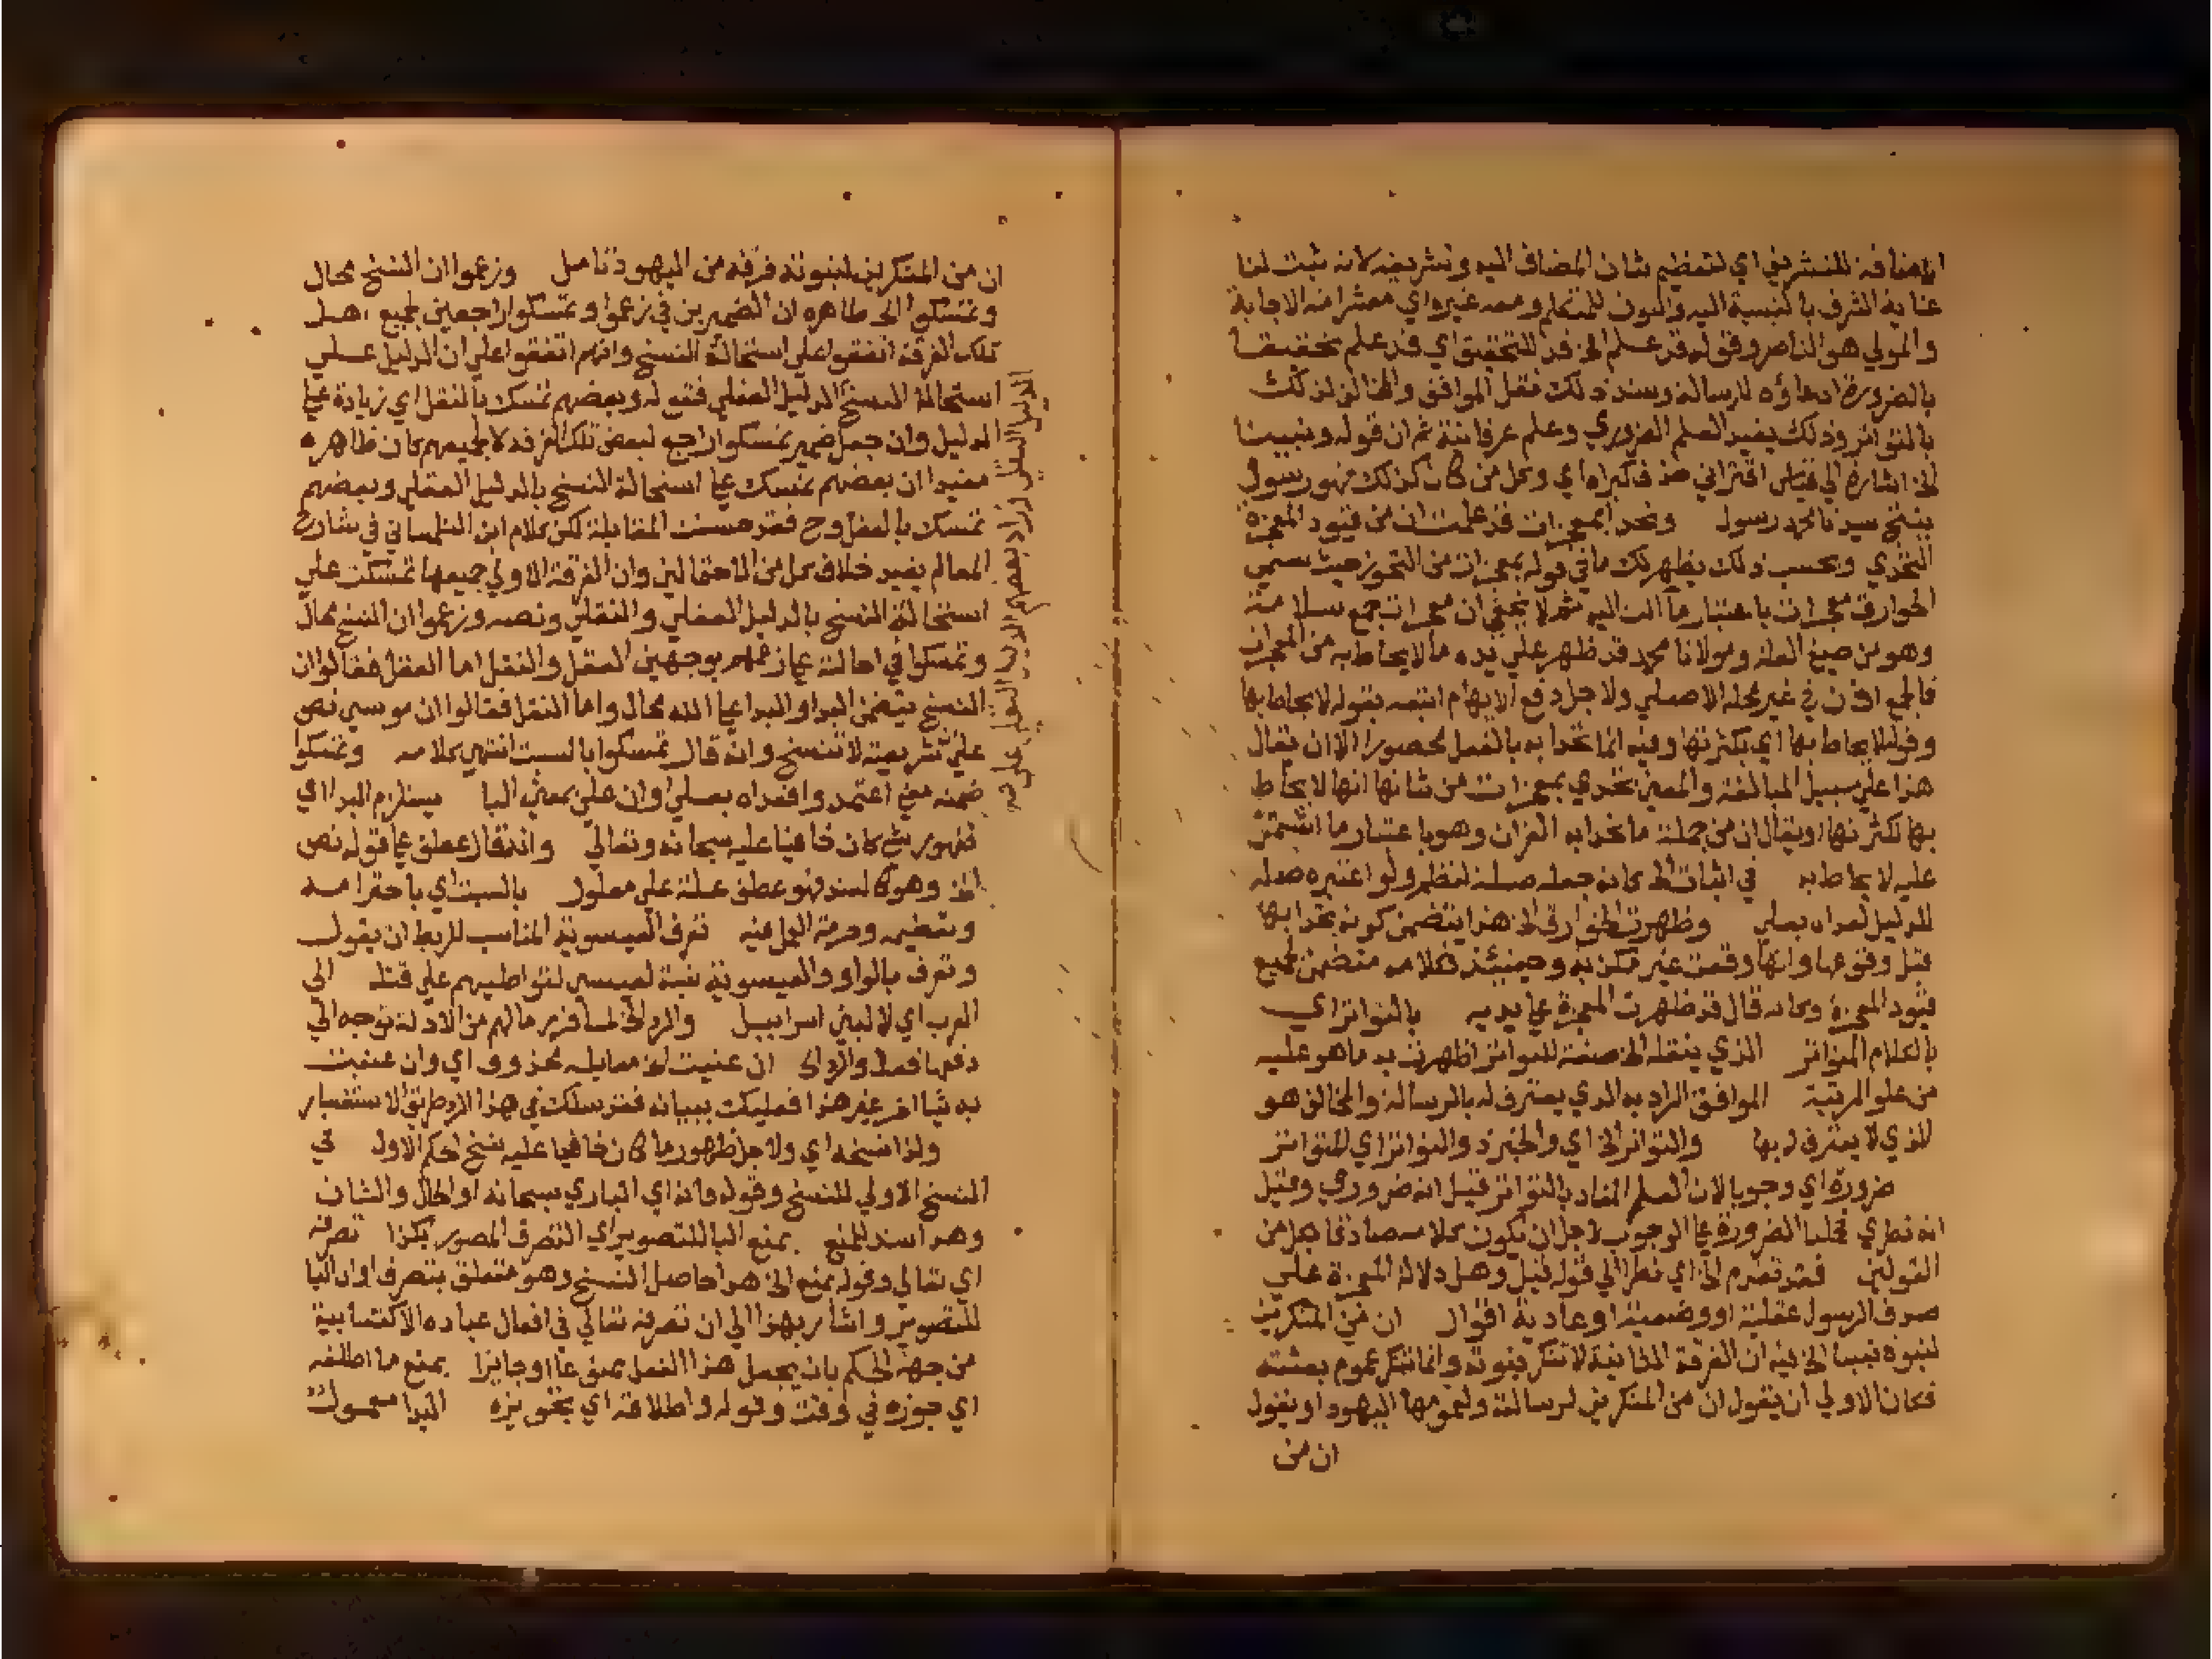 الاضافة للتشريف اي لتعظيم شان المضاف اليه وتشريفه لانه ثبت لنا
غاية الشرف بالنسبة اليه والنون للمتكلم ومعه غيره اي معشر امة الاجابة
والمولي هو الناصر وقوله قد علم الخ قد للتحقيق اي قد علم تحقيقا
بالضرورة ادعاؤه للرسالة وسند ذلك نقل الموافق والمخالف لذلك
بالتواتر وذلك يفيد العلم الضروري وعلم عرفانية ثم ان قوله ونبينا
الخ اشارة الي قياس اقتراني حذف كبراه اي وكل من كان كذلك فهو رسول
ينتج سيدنا محمد رسول وتحدا بمعجزات قد علمت ان من قيود المعجزة
التحدي وبحسب ذلك يظهر لك ما في قوله بمعجزات من التجوز حيث سمي
الخوارق معجزات باعتبار ما آلت اليه ثم لا يخفي ان معجزات جمع سلامة
وهو من صيغ القلة ومولانا محمد قد ظهر علي يده ما لا يحاط به من المعجزات
فالجمع اذن في غير محله الاصلي ولاجل دفع الايهام اتبعه بقوله لا يحاط بها
وقوله لا يحاط بها اي بكثرتها وفيه انما تحدا به بالفعل محصور الا ان يقال
هذا علي سبيل المبالغة والمعني تحدي بمعجزات من شانها انها لا يحاط
بها لكثرتها او يقال ان من جملة ما تحدا به القران وهو باعتبار ما اشتمل
عليه لا يحاط به في اثبات الخ كانه جعله صلة لنظر ولو اعتبره صلة
للدليل لعداه بعلي وظهرت الخوارق الخ هذا يتضمن كونه تحدا بها
قبل وقوعها وانها وقعت غير مكذبة وحينئذ فكلامه متضمن لجميع
قيود المعجزة وكانه قال قد ظهرت المعجزة علي يديه بالتواتر اي
بالكلام المتواتر الذي ينقله الخ صفة للتواتر اظهرت به ما هو عليه
من علو المرتبة الموافق المراد به الذي يعترف له بالرسالة والمخالف هو
الذي لا يعترف له بها والتواتر الخ اي والخبر ذو التواتر اي المتواتر
ضرورة اي وجوبا لان العلم المفاد بالتواتر قيل انه ضروري وقيل
انه نظري فحملنا الضرورة علي الوجوب لاجل ان يكون كلامه صادقا بكل من
القولين فقد تقدم الخ اي نظرا الي قوله قبل وهل دلالة المعجزة علي
صدق الرسول عقلية او وضعية او عادية اقوال ان من المنكرين
لنبوة نبينا الخ فيه ان الفرقة الثانية لا تنكر نبوته وانما تنكر عموم بعثته
فكان الاولي ان يقول ان من المنكرين لرسالته ولعمومها اليهود او يقول
ان من
ان من المنكرين لنبوته فرقة من اليهود تامل وزعموا ان النسخ محال
وتمسكوا الخ ظاهره ان الضميرين في زعموا وتمسكوا راجعين لجميع اهل
تلك الفرقة اتفقوا علي استحالة النسخ وانهم اتفقوا علي ان الدليل علي
استحالة النسخ الدليل العقلي فقوله وبعضهم تمسك بالنقل اي زيادة علي
الدليل وان جعل ضمير تمسكوا راجع لبعض تلك الفرقة لا لجميعهم كان ظاهره
مفيدا ان بعضهم تمسك علي استحالة النسخ بالدليل العقلي وبعضهم
تمسك بالنقل وح فقد حسنت المقابلة لكن كلام ابن التلمساني في شارح
المعالم يفيد خلاف كل من الاحتمالين وان الفرقة الاولي جميعها تمسكت علي
استحالة النسخ بالدليل العقلي والنقلي ونصه وزعموا ان النسخ محال
وتمسكوا في احالته علي زعمهم بوجهين العقل والنقل اما العقل فقالوا ان
النسخ يتضمن البدا والبدا علي الله محال واما النقل فقالوا ان موسي نص
علي ان شريعته لا تنسخ وانه قال تمسكوا بالسبت انتهي كلامه وتمسكوا
ضمنه معني اعتمد وا فعداه بعلي او ان علي بمعني البا يستلزم البدا اي
ظهور شي كان خافيا عليه سبحانه وتعالي وانه قال عطف علي قوله نص
الخ وهو كالسند فهو عطف علة علي معلول بالسبت اي باحترامه
وتعظيمه وحرمة العمل فيه تعرف العيسوية المناسب للربط ان يقول
وتعرف بالواو والعيسوية نسبة لعيسي لتواطيهم علي قتله الي
العرب اي لا لبني اسراييل والرد الخ لما فرر مالهم من الادلة توجه الي
دفعها فقال والرد الخ ان عنيت الخ مقابله محذوف اي وان عنيت
به شيا اخر غير هذا فعليك ببيانه فقد سلك في هذا الرد طريق الاستفسار
ولذا نسخه اي ولاجل ظهور ما كان خافيا عليه نسخ الحكم الاول في
النسخ الاولي للنسخ وقوله فانه اي الباري سبحانه او الحال والشان
وهذا سند للمنع بمنع البا للتصوير اي التصرف المصور بكذا تصرفه
اي تعالي وقوله بمنع الخ هذا حاصل النسخ وهو متعلق بتصرف او ان البا
للتصوير واشار بهذا الي ان تصرفه تعالي في افعال عباده الاكتسابية
من جهة الحكم بان يجعل هذا الفعل ممنوعا او جايزا بمنع ما اطلقه
اي جوزه في وقت وقوله واطلاقه اي تجويزه البدا معمول
الدليل العقلي وزاد بعضهم الدليل النقلي عليه